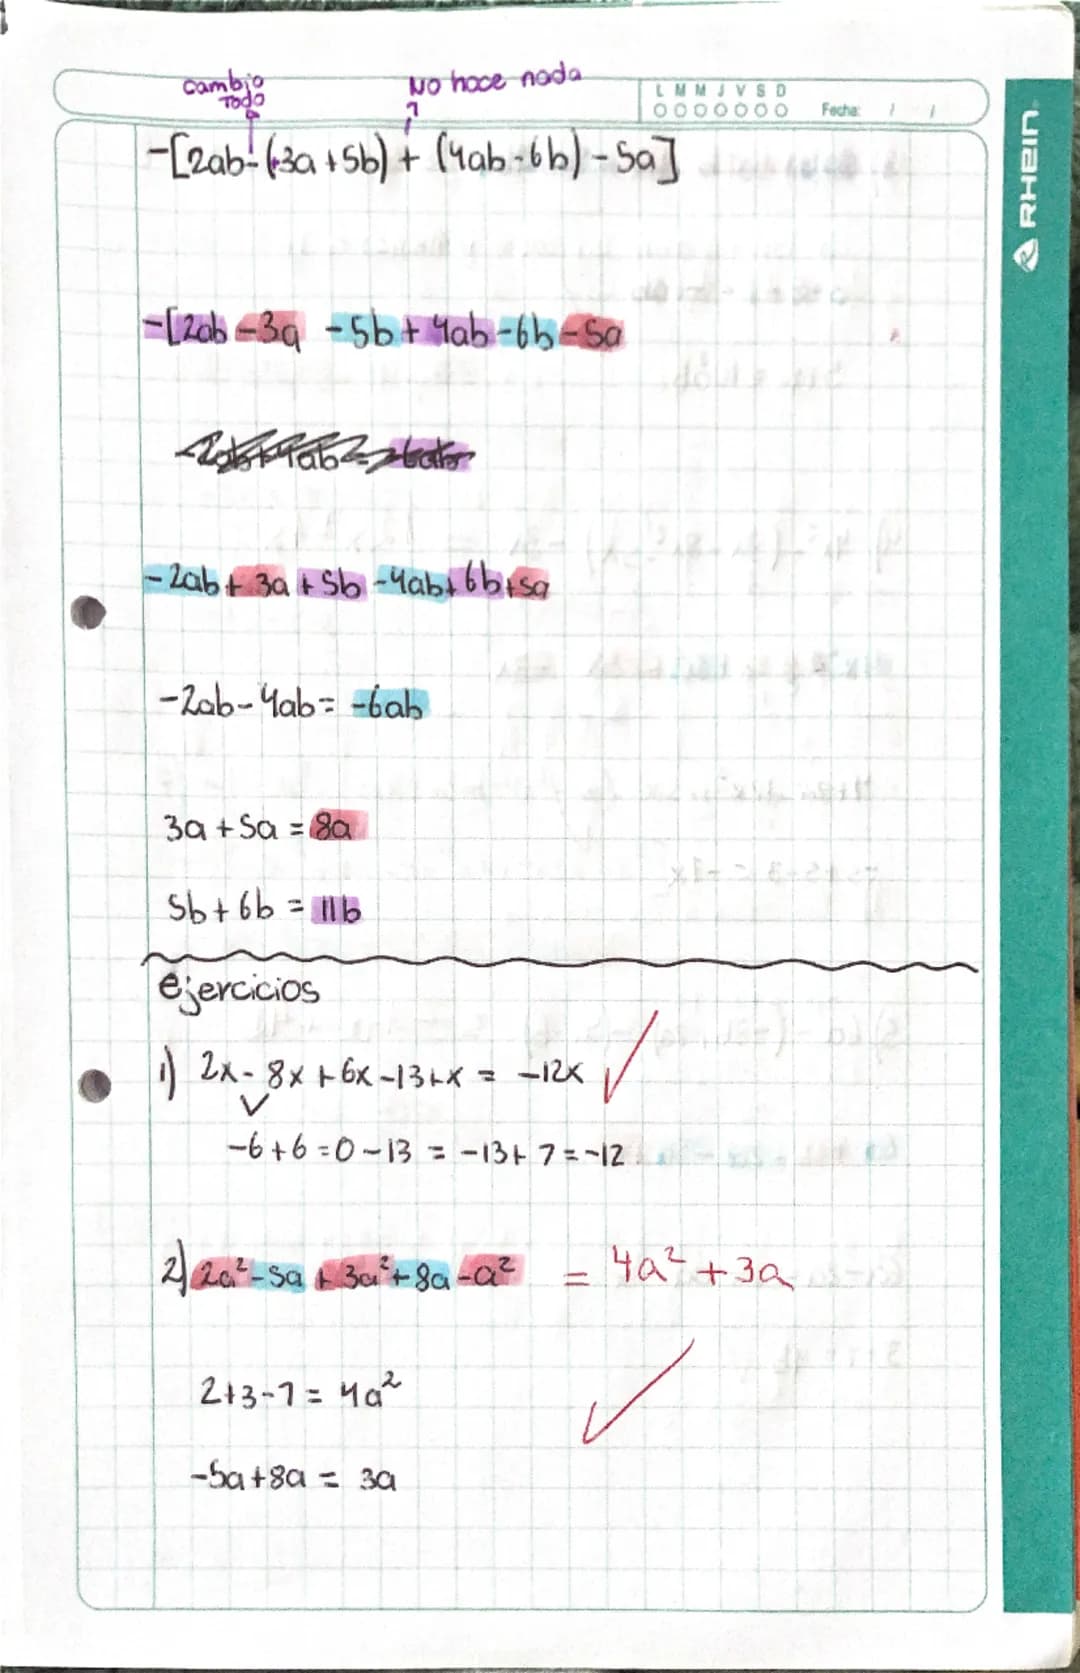 cambio
TODO
No hace nada
L M M J V S D
Fecha: / /
RHEIN
-[2ab-(+3a+5b)+(4ab-6b)-5a]
-[2ab-3a -5b+4ab-6b-5a
-2ab+3a+5b-4ab+6b+5a
-2ab-4ab= -6ab
3a+5a=8a
5b+6b = 11b
ejercicios
1) 2x-8x+6x-13+x = -12x ✓
-6+6=0-13 = -13+7=-12
2) 2a²-5a+3a²+8a-a² = 4a²+3a
2+3-1= 4a²
-5a+8a = 3a